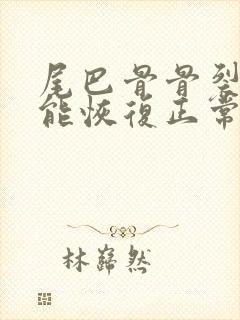 尾巴骨骨裂
能恢復正常
林巋然